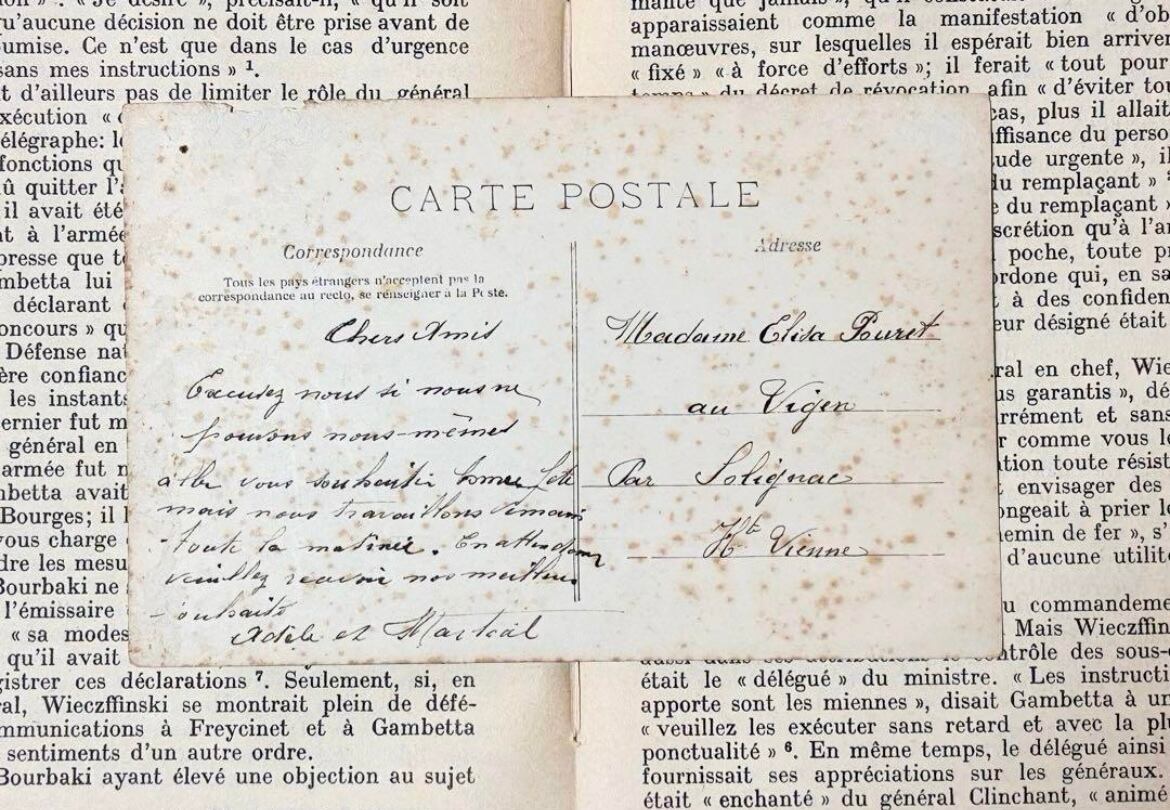 on » . « Je désire », précisait-il, « qu'il soit
qu'aucune décision ne doit être prise avant de
oumise. Ce n'est que dans le cas d'urgence
sans mes instructions » ¹.
t d'ailleurs pas de limiter le rôle du général
xécution «
élégraphe: l
fonctions qu
û quitter l'
il avait été
t à l'armée
presse que t
mbetta lui
déclarant
oncours » qu
Défense nat
ère confianc
les instants
ernier fut m
général en
armée fut n
mbetta avait
Bourges; il
vous charge
dre les mesu
Bourbaki ne
l'émissaire
« sa modes
qu'il avait
gistrer ces déclarations ⁷. Seulement, si, en
ral, Wieczffinski se montrait plein de défé-
mmunications à Freycinet et à Gambetta
sentiments d'un autre ordre.
Bourbaki ayant élevé une objection au sujet
CARTE POSTALE
Correspondance
Tous les pays étrangers n'acceptent pas la
correspondance au recto, se renseigner à la Poste.
Chers Amis
Excusez nous si nous ne
pouvons nous-mêmes
aller vous souhaiter bonne fête
mais nous travaillons demain
toute la matinée. En attendant
veuillez recevoir nos meilleurs
souhaits
Adèle et Martial
Adresse
Madame Elisa Puret
au Vigen
Par Solignac
Hte Vienne
mante que jamais », qu'il
apparaissaient comme la manifestation « d'ob
manœuvres, sur lesquelles il espérait bien arriver
« fixé » « à force d'efforts »; il ferait « tout pour
temps » du décret de révocation afin « d'éviter tou
cas, plus il allait
ffisance du perso
ude urgente », il
du remplaçant »
e du remplaçant »
scrétion qu'à l'a
poche, toute pr
ordone qui, en sa
t à des confiden
eur désigné était
ral en chef, Wie
us garantis », dé
rrément et sans
r comme vous l
tion toute résist
envisager des
ongeait à prier l
hemin de fer », s'
d'aucune utilité
u commandeme
Mais Wieczffin
aussi dans ses attributions le contrôle des sous-
était le « délégué » du ministre. « Les instructi
apporte sont les miennes », disait Gambetta à un
« veuillez les exécuter sans retard et avec la plu
ponctualité » ⁶. En même temps, le délégué ainsi
fournissait ses appréciations sur les généraux.
était « enchanté » du général Clinchant, « animé